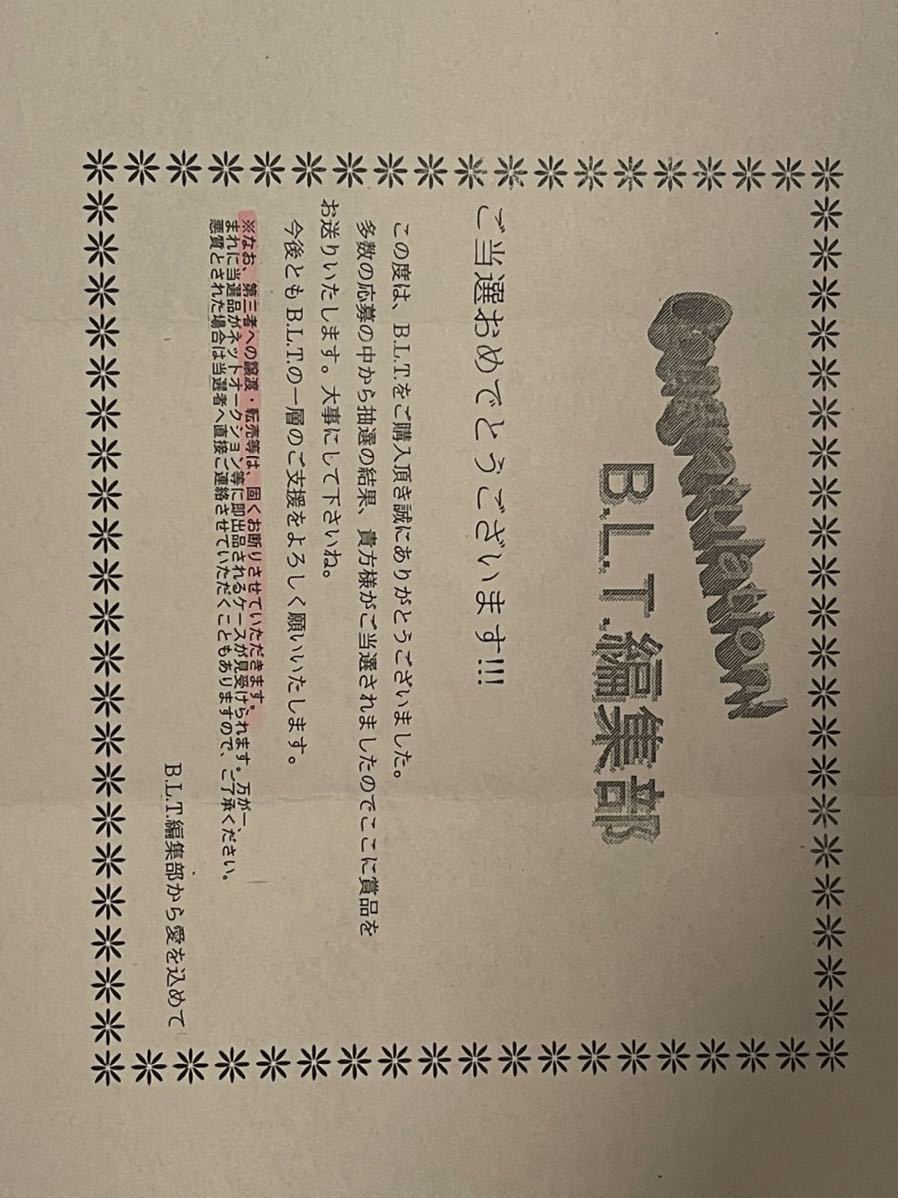 Congratulation!
B.L.T.編集部
ご当選おめでとうございます!!!
この度は、B.L.T.をご購入頂き誠にありがとうございました。
多数の応募の中から抽選の結果、貴方様がご当選されましたのでここに賞品を
お送りいたします。大事にして下さいね。
今後ともB.L.T.の一層のご支援をよろしく願いいたします。
※なお、第三者への譲渡・転売等は、固くお断りさせていただきます。
まれに当選品がネットオークション等に即出品されるケースが見受けられます。万が一、
悪質とされた場合は当選者へ直接ご連絡させていただくこともありますので、ご了承ください。
B.L.T.編集部から愛を込めて